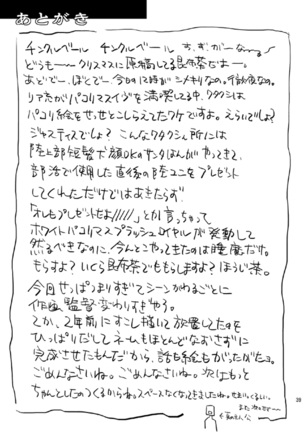 あとがき
チンクルベール チンクルベール す、ず、が、なーる
どうもーークリスマスに原稿してる昆布茶だよー。
あとで…ぼとで…今日の12時がシメキリなの。
リア充がパコリマスイヴを満喫してる中、ワタクシは
パコリ絵をせっせとこしらえてたワケですよ。えらいでしょ?
ジャスティスでしょ? こんなワタクシん所には
陸上部短髪犬顔OKのサンタほんがやってきて、
部活で使用した直後の陸ユニをプレゼント
してくれただけではあきたらず
「オレもプレゼントだよ/////」とか言っちゃって
ホワイトパコリマスプラッシュロイヤルが発動して
然るべきなのに、今んとこやってきたのは睡魔だけ。
もらすよ? いくら昆布茶でももらしますよ? ほうじ茶。
今回せっぱつまりすぎてシーンかわるごとに
作画監督変わりすぎやろ。
てか、2年前にすこし描いて放置してたのを
ひっぱりだしてネームもほとんどなおさずに
完成させたもんだから、話も絵もがったがたョ。
ごめんなさいね。ごめんなさいね。次はもっと
ちゃんとしたのつくるからね。スペースなくなってきましたね。
また次回でー
39